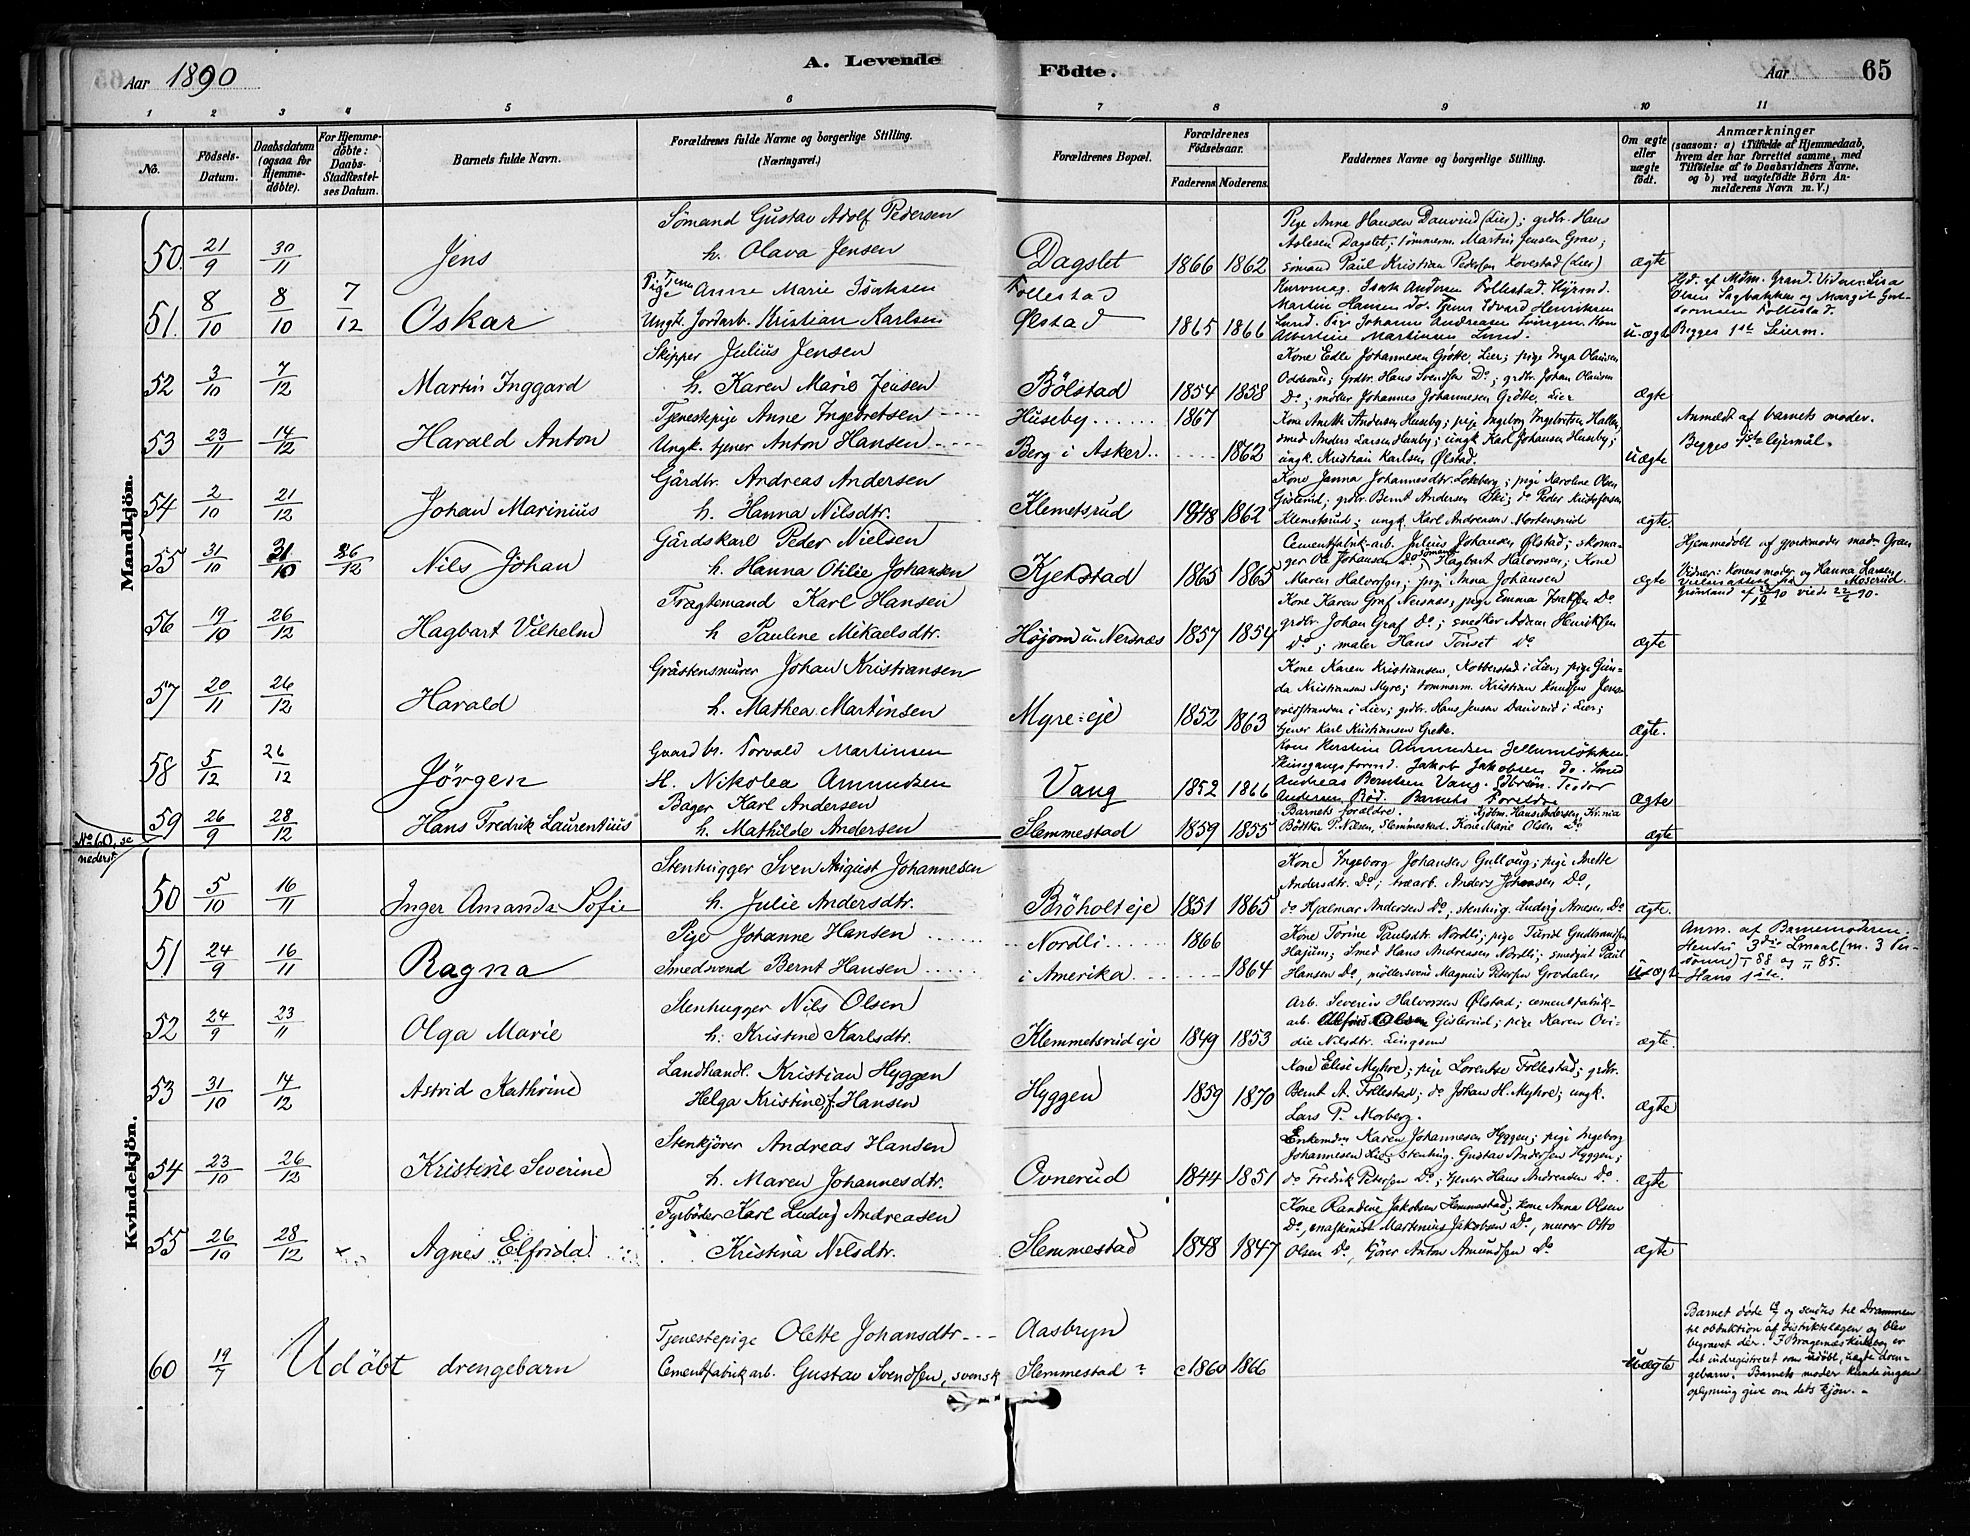 Aar 1890 A. Levende Födte. Aar 65
1 2 3 4 5 6 7 8 9 10 11
No. Födsels-Datum. Daabsdatum (ogsaa for Hjemmedöbte). For Hjemmedöbte: Daabs-Stadfæstelses Datum. Barnets fulde Navn. Forældrenes fulde Navne og borgerlige Stilling. (Næringsvei.) Forældrenes Bopæl. Forældrenes Födselsaar. Faderens. Moderens. Faddernes Navne og borgerlige Stilling. Om ægte eller uægte födt. Anmærkninger (saasom: a) i Tilfælde af Hjemmedaab, hvem der har forrettet samme, med Tilföielse af to Daabsvidners Navne, og b) ved uægtefödte Börn Anmelderens Navn m. V.)
Mandkjön.
Sömand Gustav Adolf Pedersen
50. 21/9 30/11 Jens h. Olava Jensen Dagslet 1866 1862 ægte
Pige Anne Hansen Dauvud (Lier); grdbr. Hans
Aslesen Dagslet; tömmerm. Martin Jensen Grav;
sömand Paul Kristian Pedersen Kovestad (Lier)
Tjen. Pige Anne Marie Isaksen Follestad
51. 8/10 8/10 7/12 Oskar Ungk. Jordarb. Kristian Karlsen Ølstad 1865 1866 u-ægte
Kurvmag. Isak Andersen Follestad. Kjörmd.
Martin Hansen do. Tjener Edvard Henriksen
Lund. Pige Johanne Andreasen Svingen. Kone
Albertine Martinsen Lund.
Hjd. af Mdm. Grand. Vidner: Lisa
Olsen Sagbakken og Margit Gut-
tormsen Follestad.
Begges 1ste Leierm.
Skipper Julius Jensen
52 3/10 7/12 Martin Inggard h. Karen Marie Jensen Bölstad 1854 1858 ægte
Kone Edle Johannesen Grötte, Lier; pige Inga Olausen
Oddevald; Grdbr. Hans Svendsen Do; grdbr. Johan Olausen
Do; möller Johannes Johannesen Grötte, Lier
Tjenestepige Anne Ingebretsen Huseby 1867
53 23/11 14/12 Harald Anton Ungk. tjener Anton Hansen Berg i Asker 1862 uægte
Kone Anette Andersen Huseby; pige Ingeborg Ingebretsen Hallen,
smed Anders Larsen Huseby; ungk. Karl Johansen Huseby;
ungk. Kristian Karlsen Ølstad.
Anmeldt af barnets moder.
Begges 1ste lejermål.
Gårdbr. Andreas Andersen
54 2/10 21/12 Johan Marinius h. Hanna Nilsdtr. Klemetsrud 1848 1862 ægte
Kone Janna Johannesdtr. Lökeberg; pige Karoline Olsen
Gislerud; grdbr. Bernt Andersen Ski; do Peder Kristofersen
Klemetsrud; ungk. Karl Andreasen Mortensrud
Gårdskarl Peder Nielsen
55 31/10 31/10 26/12 Nils Johan h. Hanna Otilie Johansen Kjekstad 1865 1865 ægte
Cementfabrik-arb. Julius Johansen Ølstad; skoma-
ger Ole Johansen do; sömand Hagbart Halvorsen; Kone
Maren Halvorsen; pige Anna Johansen
Hjemmedöbt af gjordmoder madm Gran
Vidner: konens moder og Hanna Larsen Moserud.
Fragtemand Karl Hansen
56 19/10 26/12 Hagbart Vilhelm h Pauline Mikaelsdtr. Höjom u. Nersnæs 1857 1854 ægte
Kone Karen Graf Nersnæs; pige Emma Isaksen Do
grdbr. Johan Graf do; snedker Adam Henriksen
Do; maler Hans Tönset Do
Gråstensmurer Johan Kristiansen
57 20/11 26/12 Harald h. Mathea Martinsen Myre-eje 1852 1863 ægte.
Kone Karen Kristiansen, Kobberstad i Lier; pige Gun-
da Kristiansen Myre; tömmerm. Kristian Knudsen Jens-
voldstranden i Lier; grdbr. Hans Jensen Dauvrud i Lier;
tjener Karl Kristiansen Grette.
Gaardbr. Torvald Martinsen
58 5/12 26/12 Jörgen H. Nikolea Amundsen Vang 1852 1866 ægte
Kone Kerstine Amundsen Jellumlökken
Skinsgangsformd. Jakob Jakobsen do. Smed
Andreas Berntsen Vang. Teodor
Andersen Böd. Barnets Foreldre
Bager Karl Andersen
59 26/9 28/12 Hans Fredrik Laurentius h. Mathilde Andersen Slemmestad 1859 1855 ægte
Barnets foreldre. Kjöbm. Hans Andersen, Kr.nia
Bödtker P. Nilsen, Slemmestad. Kone Marie Olsen Do
No 60, se nederst
Kvindekjön.
Stenhugger Sven August Johannesen
50 5/10 16/11 Inger Amanda Sofie h. Julie Andersdtr. Bröholt eje 1851 1865 ægte.
Kone Ingeborg Johansen Gullaug; pige Anette
Andersdtr. Do; træarb. Anders Johansen Do,
do Hjalmar Andersen Do; stenhug. Ludvig Arnesen Do
Pige Johanne Hansen Nordli 1866
51 24/9 16/11 Ragna Smedsvend Bernt Hansen i Amerika 1864 u-ægt
Kone Torine Paulsdtr. Nordli; pige Turid Gudbrandsen
Hajum; Smed Hans Andreasen Nordli; smedgut Paul
Hansen Do, möllersvend Magnus Petersen Grodalen
Anm. af Barnemoderen;
Hendes 3die Lmaal (m. 3 Per-
soner) - 88 og " 85.
Hans 1ste.
Stenhugger Nils Olsen
52 24/9 23/11 Olga Marie h. Kristine Karlsdtr. Klemmetsrud eje 1849 1853 ægte.
Arb. Severin Halvorsen Ølstad; cementfabrik-
arb. Gislerud; pige Karen Ovi-
die Nilsdtr.
Landhandl. Kristian Hyggen
53 31/10 14/12 Astrid Kathrine Helga Kristine f. Hansen Hyggen 1859 1870 ægte
Kone Elise Myhre; pige Lorentse Follestad; grdbr.
Bernt A. Follestad; do Johan H. Myhre; ungk.
Lars P. Morberg.
Stenkjörer Andreas Hansen
54 23/10 26/12 Kristine Severine h. Maren Johannesdtr. Ovnerud 1844 1851 ægte
Enkemdm Karen Johannesen Hyggen; pige Ingeborg
Johannesen Lid; stenhug. Gustav Andersen Hyggen;
do Fredrik Petersen Do; tjener Hans Andreasen Do.
Fyrböder Karl Ludvig Andreasen
55 26/10 28/12 Agnes Elfrida Kristina Nilsdtr. Slemmestad 1848 1847 ægte
Kone Randine Jakobsen Slemmestad; kone Anna Olsen
Do, maskinist Martinius Jakobsen Do, murer Otto
Olsen Do, kjörer Anton Amundsen Do
Tjenestepige Olette Johansdtr. Aasbryn
60 19/7 Udöbt drengebarn Cementfabrikarb. Gustav Svendsen, svensk Slemmestad ? c1860 1866 uægte
Barnet döde og sendtes til Drammen
til obduktion af distriktslægen og blev
begravet der. I Bragernæs kirkebog er
det indregistreret som udöbt, uægte dren-
gebarn. Barnets moder kunde ingen
oplysning give om dets kjön.